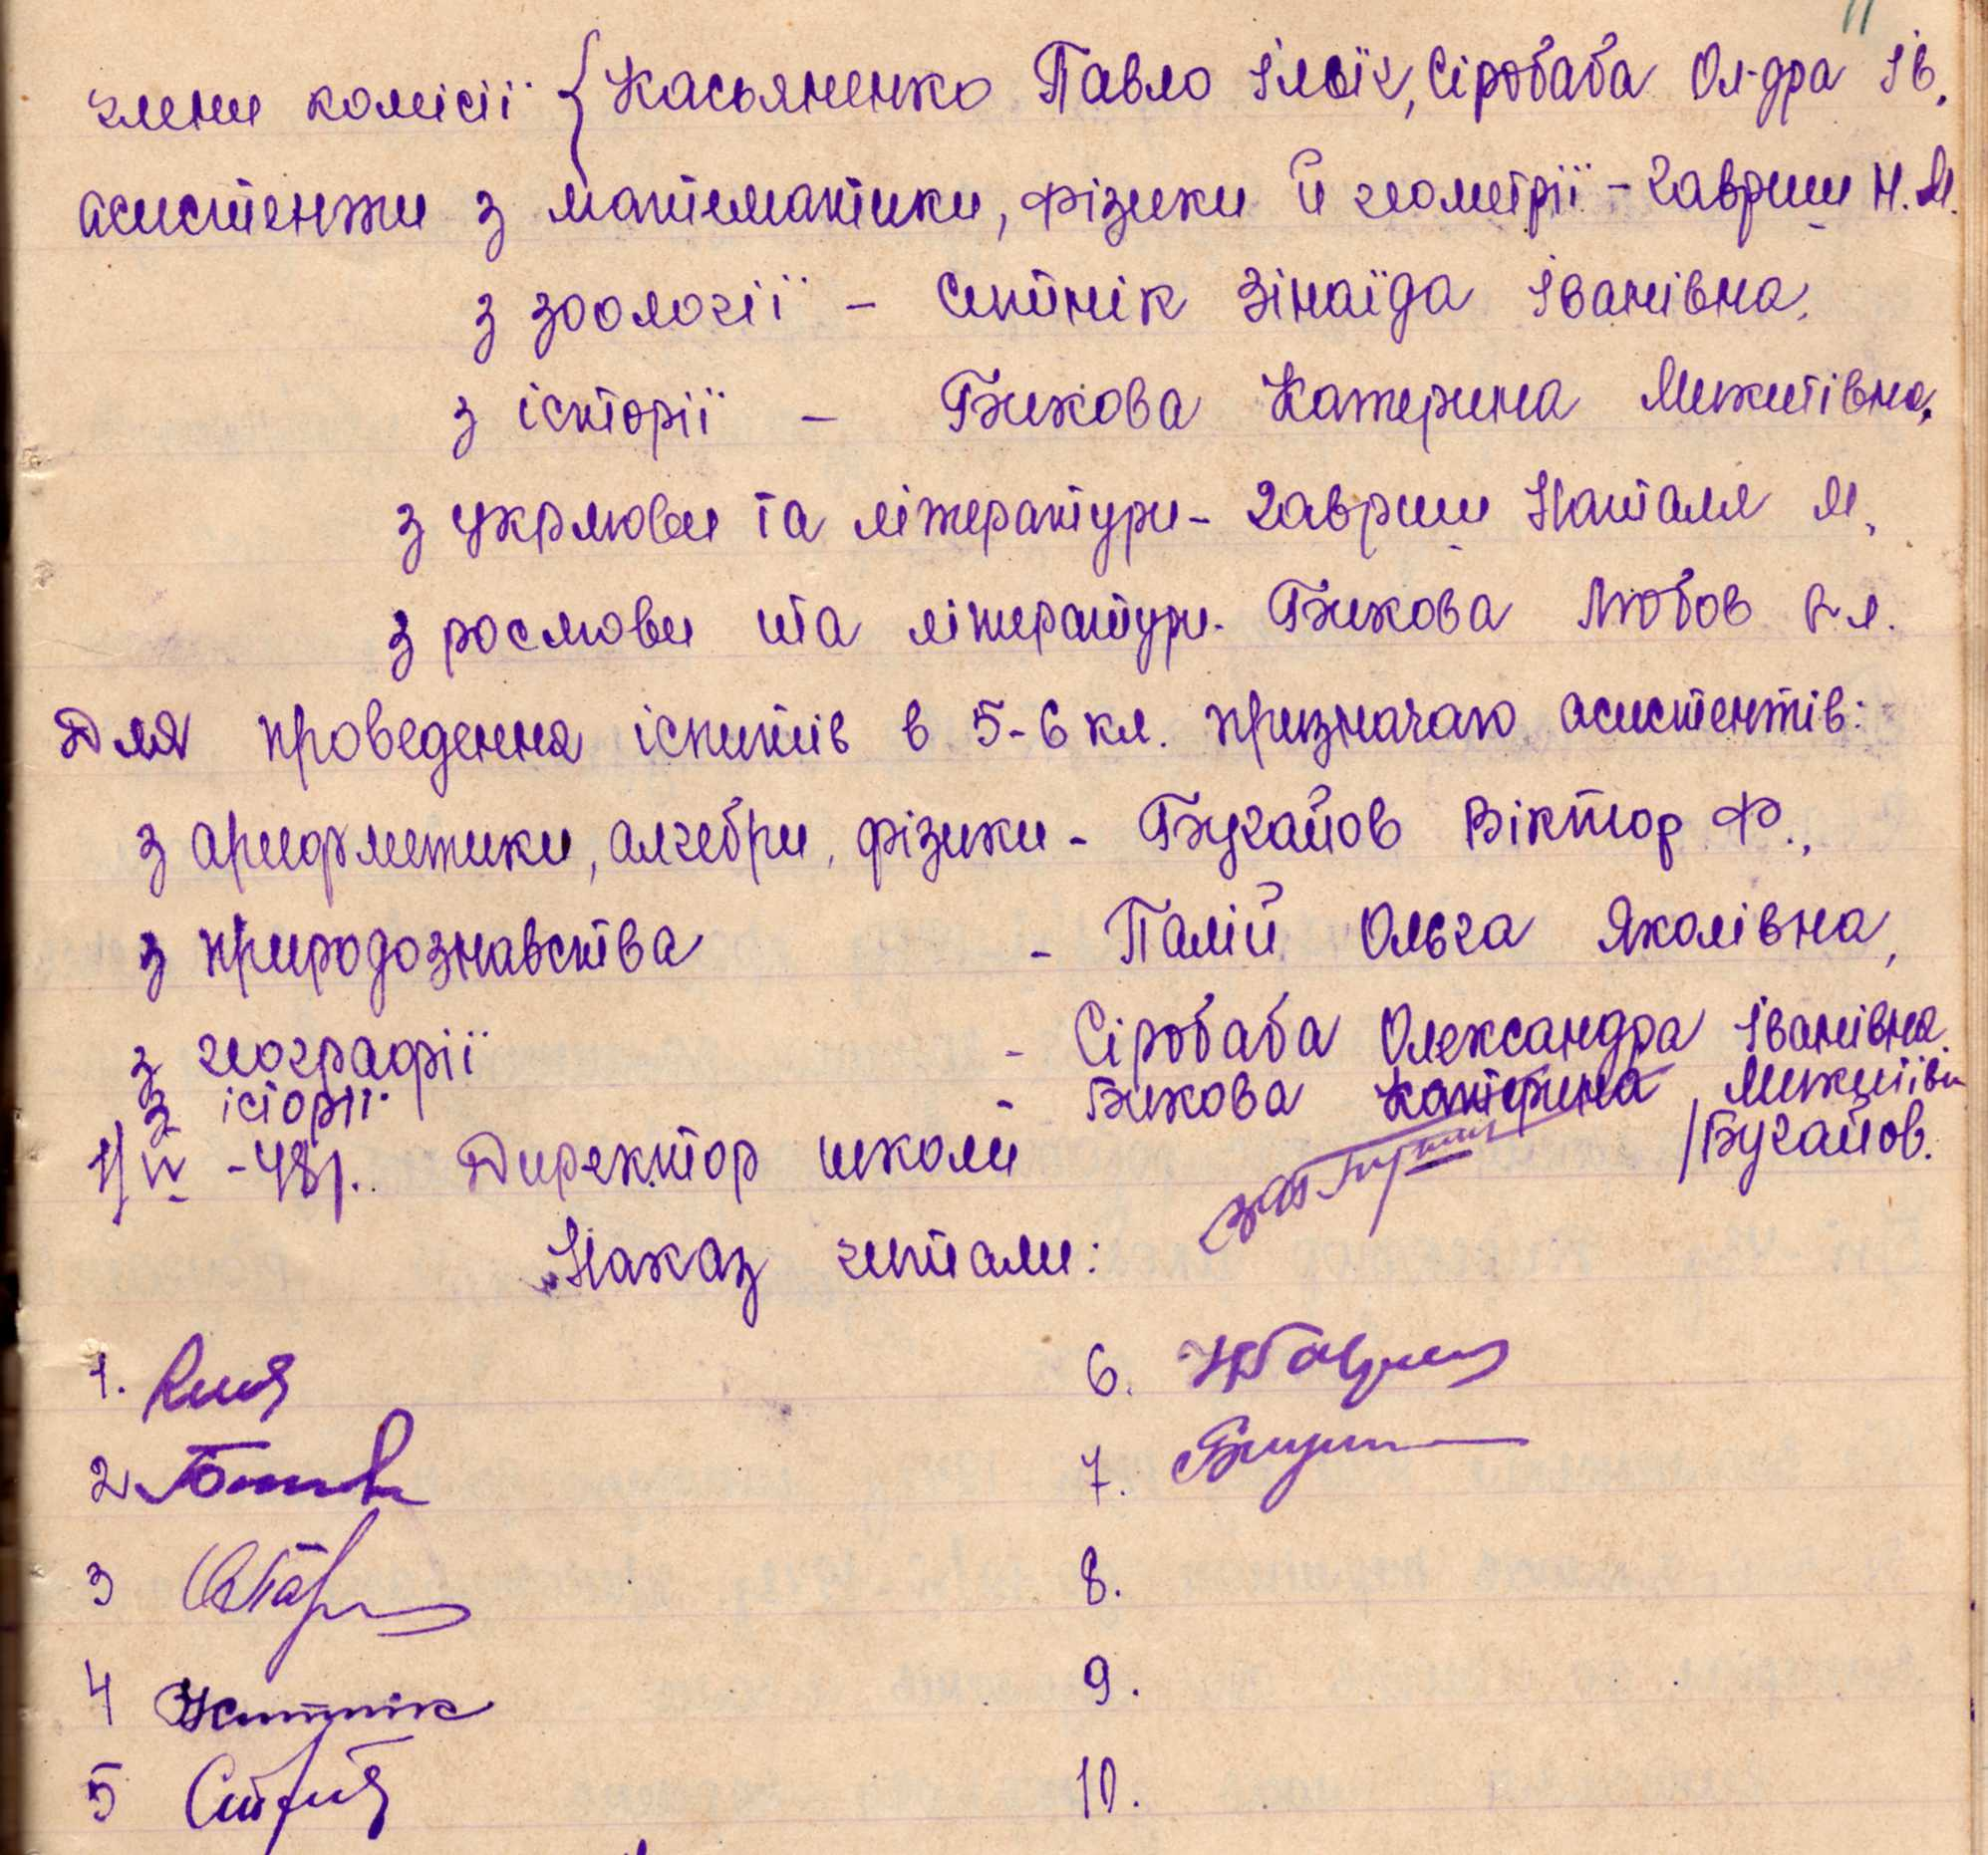 члени комісії { Касьяненко Павло Ілвіч, Сіробаба Ол-дра Ів.
асистенти з математики, фізики й геометрії - Гавриш Н.М.
з зоології - Ситнік Зінаїда Іванівна.
з історії - Бикова Катерина Микитівна,
з укрмови та літератури - Гавриш Наталя М.
з росмови та літератури - Бикова Любов
Для проведення іспитів в 5-6 кл. призначаю асистентів:
з арифметики, алгебри, фізики - Бугайов Віктор Ф.,
з природознавства - Палій Ольга Яколівна,
з географії - Сіробаба Олександра Іванівна.
з історії - Бикова Катерина Микитівн
1/IV -48р. Директор школи /Бугайов.
Наказ читали:
1.
2
3
4 Ситник
5
6. Гавриш
7.
8.
9.
10.